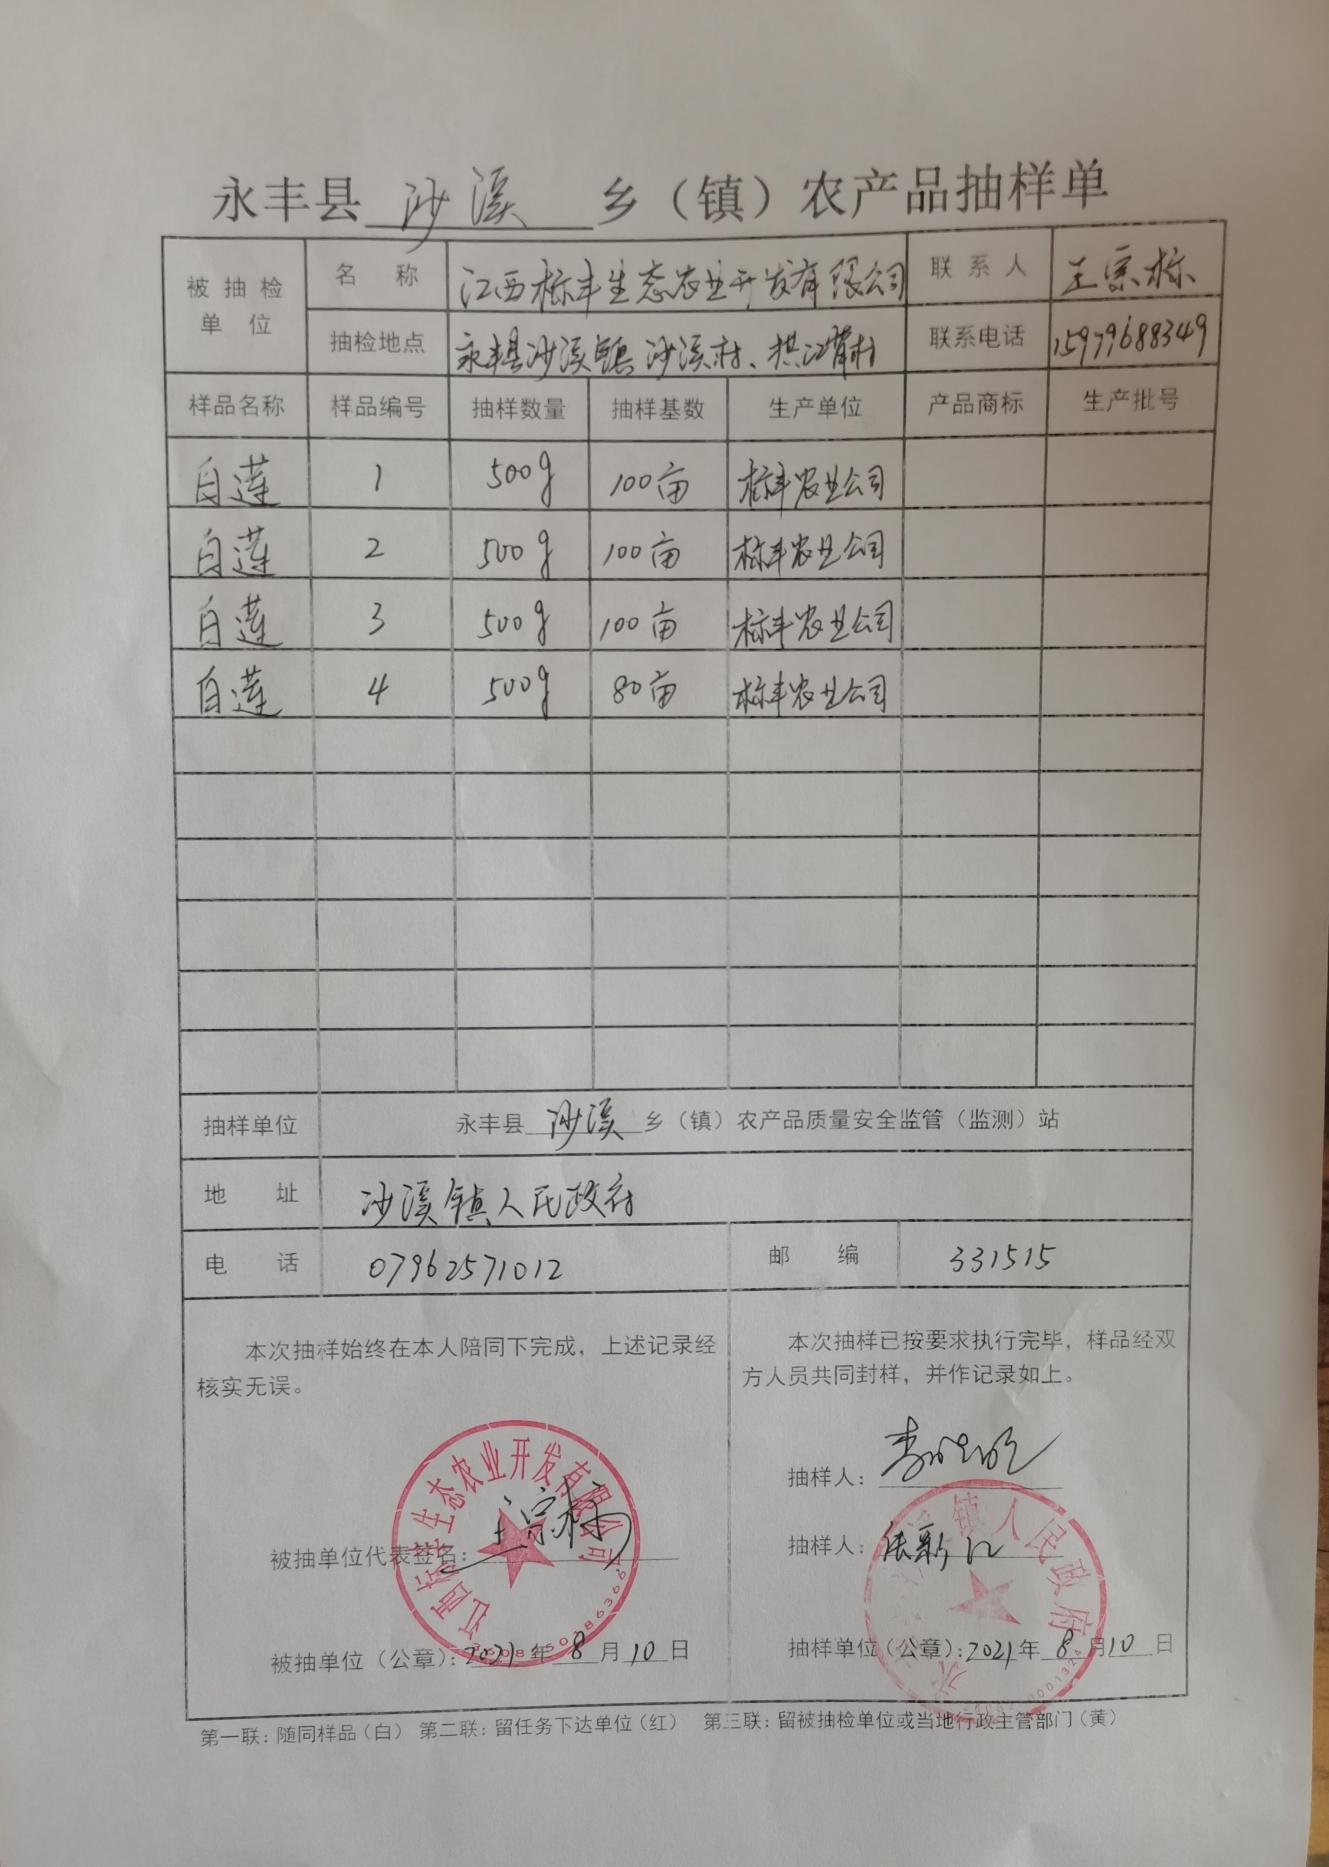 永丰县 沙溪 乡（镇）农产品抽样单
被抽检单位 名称 江西标丰生态农业开发有限公司 联系人 王宗标
抽检地点 永丰县沙溪镇沙溪村、拱江背村 联系电话 15979688349
样品名称 样品编号 抽样数量 抽样基数 生产单位 产品商标 生产批号
白莲 1 500g 100亩 标丰农业公司
白莲 2 500g 100亩 标丰农业公司
白莲 3 500g 100亩 标丰农业公司
白莲 4 500g 80亩 标丰农业公司
抽样单位 永丰县 沙溪 乡（镇）农产品质量安全监管（监测）站
地址 沙溪镇人民政府
电话 07962571012 邮编 331515
本次抽样始终在本人陪同下完成，上述记录经
核实无误。
被抽单位代表签名：王宗标
江西标丰生态农业开发有限公司
被抽单位（公章）：2021年8月10日
本次抽样已按要求执行完毕，样品经双
方人员共同封样，并作记录如上。
抽样人：
抽样人：张新江
镇人民政府
抽样单位（公章）：2021年8月10日
第一联：随同样品（白） 第二联：留任务下达单位（红） 第三联：留被抽检单位或当地行政主管部门（黄）